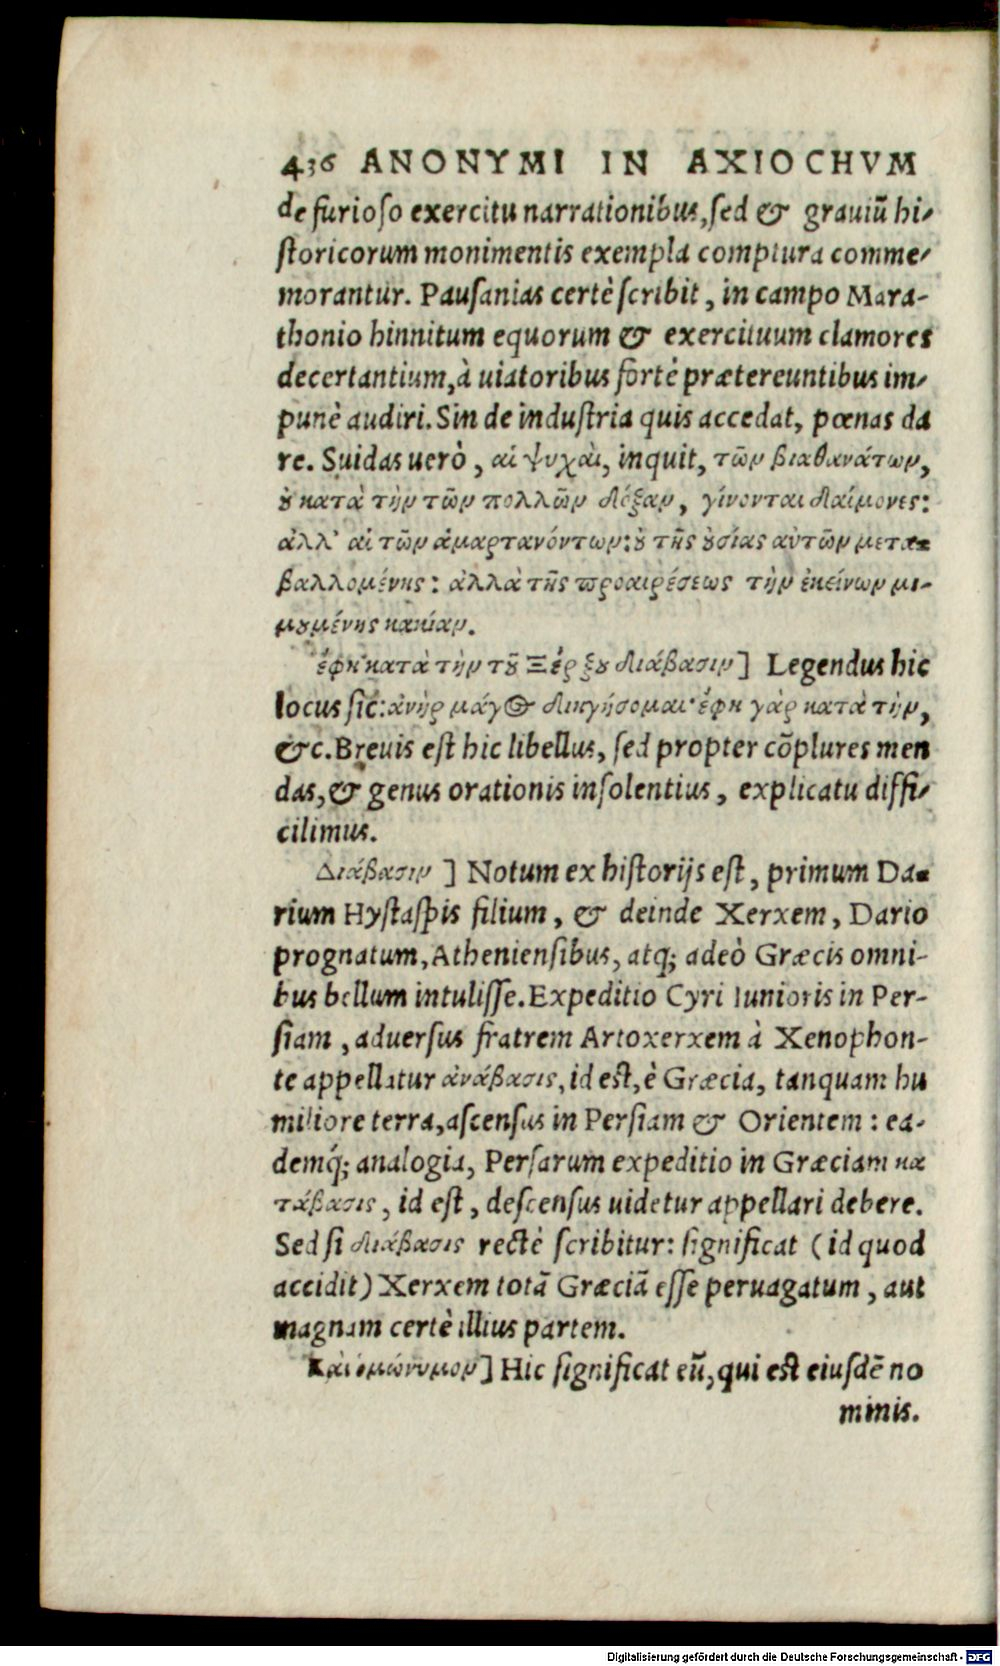 436 ANONYMI IN AXIOCHVM
de furioso exercitu narrationibus, sed & grauiũ hi-
storicorum monimentis exempla complura comme-
morantur. Pausanias certè scribit, in campo Mara-
thonio hinnitum equorum & exercituum clamores
decertantium, à uiatoribus fortè prætereuntibus im-
punè audiri. Sin de industria quis accedat, pœnas da
re. Suidas uerò, αἱ ψυχαὶ, inquit, τῶν βιαθανάτων,
ȣ κατὰ τὴν τῶν πολλῶν δόξαν, γίνονται δαίμονες:
ἀλλ' αἱ τῶν ἁμαρτανόντων: ȣ τῆς ȣσίας αὐτῶν μετα-
βαλλομένης: ἀλλὰ τῆς προαιρέσεως τὴν ἐκείνων μι-
μȣμένης κακίαν.
ἔφη κατὰ τὴν τȣ͂ Ξέρξȣ διάβασιν] Legendus hic
locus sic: ἀνὴρ μάγος διηγήσομαι· ἔφη γὰρ κατὰ τὴν,
&c. Breuis est hic libellus, sed propter cõplures men
das, & genus orationis insolentius, explicatu diffi-
cilimus.
Διάβασιν] Notum ex historijs est, primum Da-
rium Hystaspis filium, & deinde Xerxem, Dario
prognatum, Atheniensibus, atq; adeò Græcis omni-
bus bellum intulisse. Expeditio Cyri Iunioris in Per-
siam, aduersus fratrem Artoxerxem à Xenophon-
te appellatur ἀνάβασις, id est, è Græcia, tanquam hu
miliore terra, ascensus in Persiam & Orientem: ea-
demq́; analogia, Persarum expeditio in Græciam κα
τάβασις, id est, descensus uidetur appellari debere.
Sed si διάβασις rectè scribitur: significat (id quod
accidit) Xerxem totã Græciã esse peruagatum, aut
magnam certè illius partem.
Καὶ ὁμώνυμον] Hic significat eũ, qui est eiusdẽ no
minis.
Digitalisierung gefördert durch die Deutsche Forschungsgemeinschaft - DFG